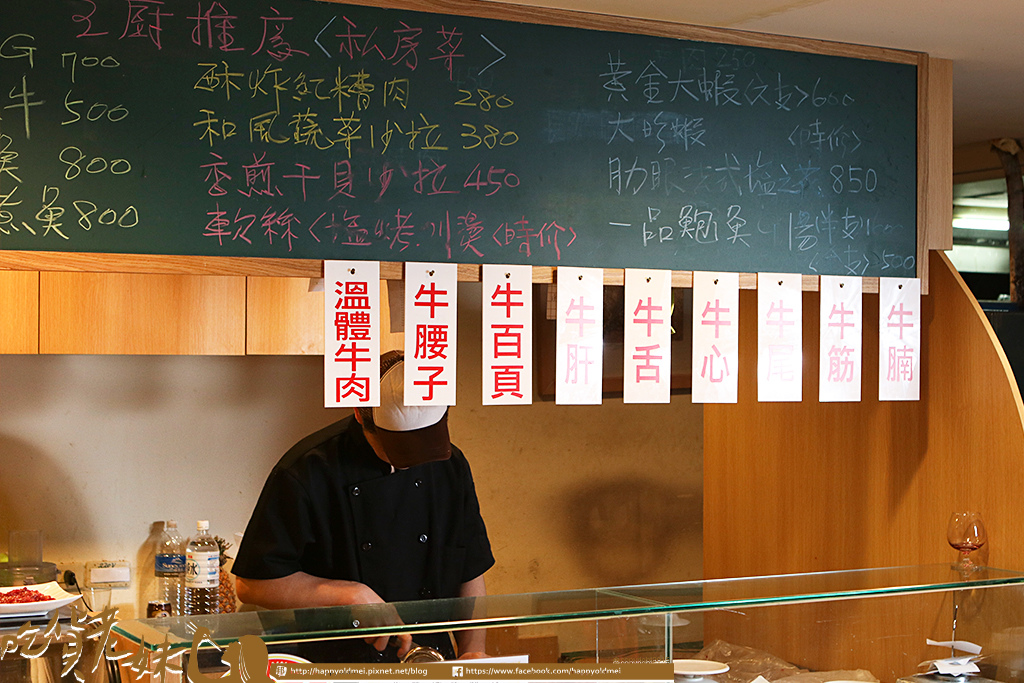 主廚推廌〈私房菜〉
G 700
牛 500
800
魚 800
酥炸紅糟肉 280
和風蔬菜沙拉 380
香煎干貝沙拉 450
軟絲〈塩烤.川燙〈時价〉
黃金大蝦〈6支〉600
大明蝦 〈時价〉
肋眼法式塩之花 850
一品鮑魚
500
溫體牛肉
牛腰子
牛百頁
牛肝
牛舌
牛心
牛尾
牛筋
牛腩
吃貨老妹
http://happyoldmei.pixnet.net/blog
https://www.facebook.com/happyoldmei